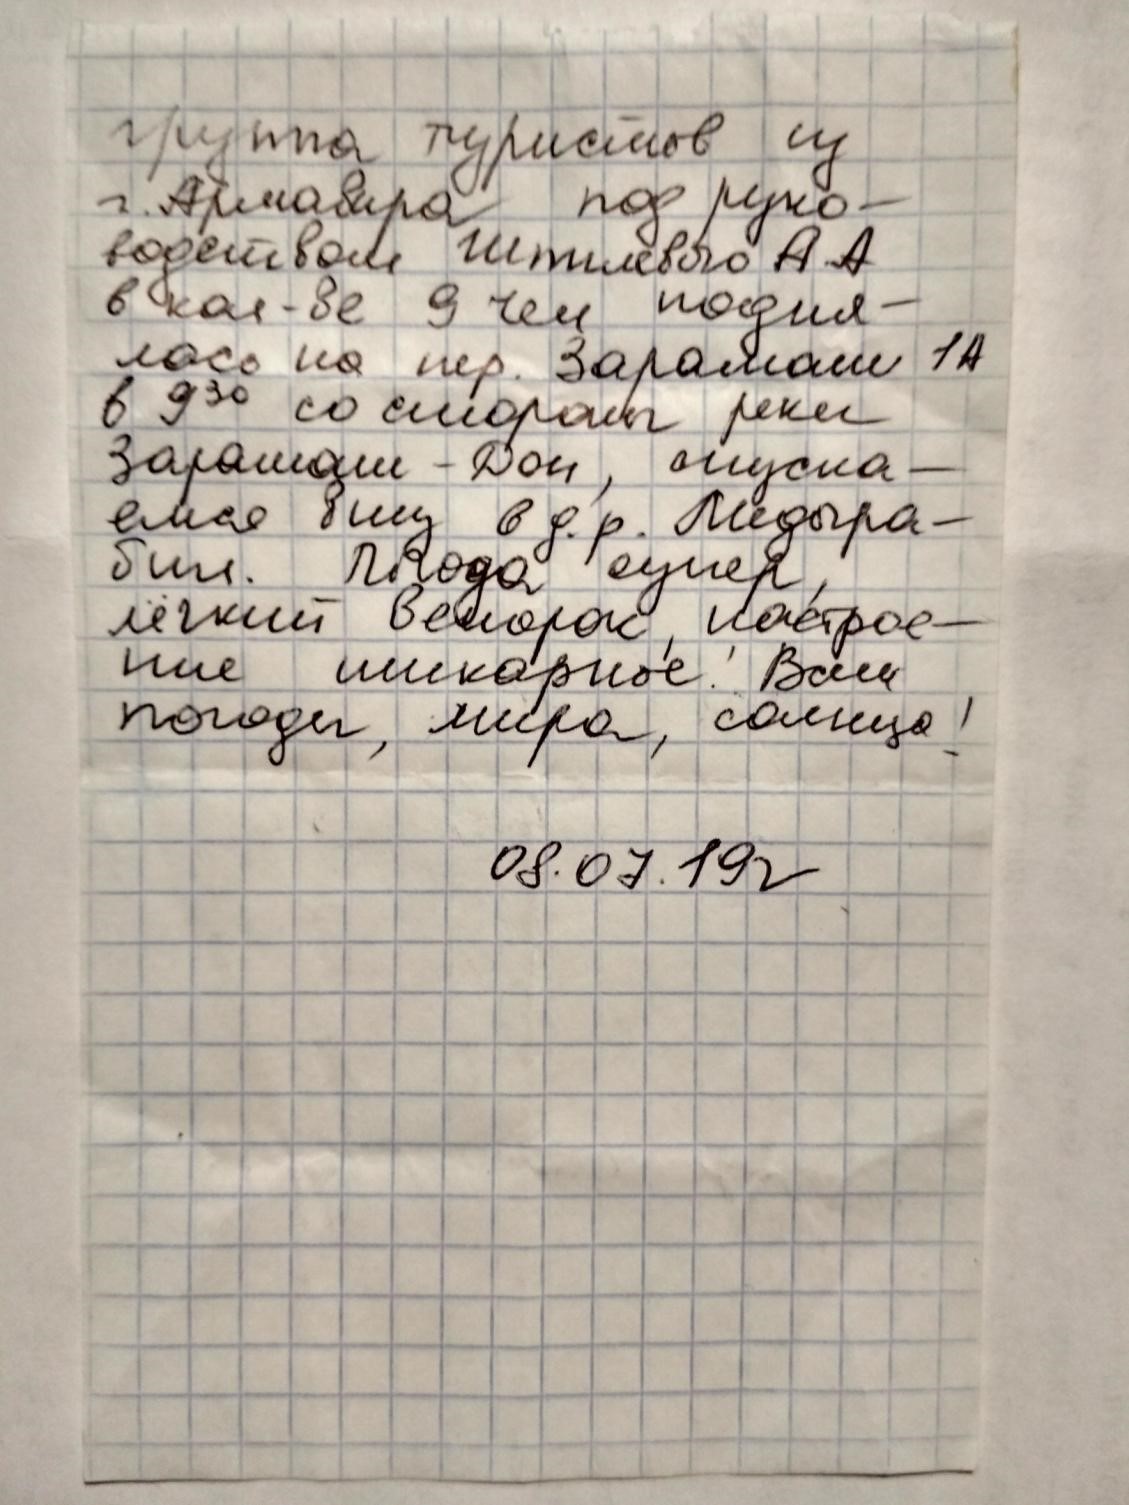 группа туристов из
г. Армавира под руко-
водством Штилевого А.А
в кол-ве 9 чел подня-
лась на пер. Зарамаш 1А
в 9³⁰ со стороны реки
Зарамаш-Дон, опуска-
емся вниз в д.р.
Погода супер,
лёгкий веторок, настрое-
ние шикарное! Вам
погоды, мира, солнца!
08.07.19г